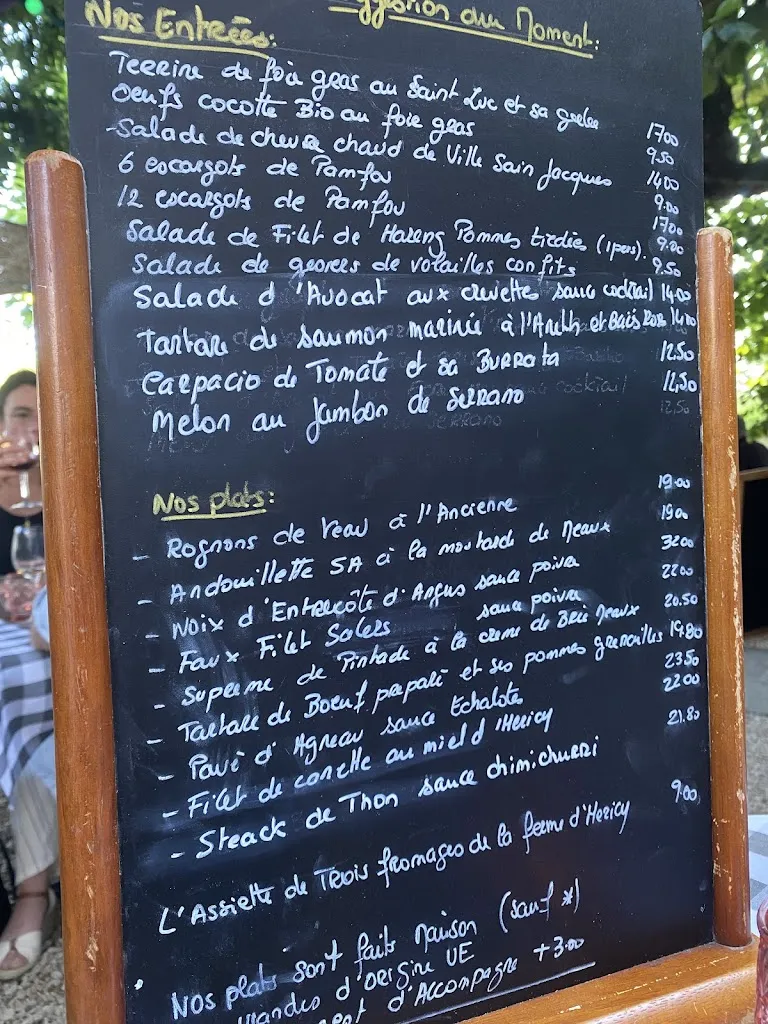 Nos Entrées:
Suggestion du Moment:
Terrine de foie gras au Saint Luc et sa gelée 17.00
Oeufs cocotte Bio au foie gras 9.50
-Salade de chevre chaud de Ville Sain Jacques 14.00
6 escargots de Pamfou 9.00
12 escargots de Pamfou 17.00
Salade de Filet de Hareng Pommes tiedies (1 pers). 9.00
Salade de georers de volailles confits 9.50
Salade d'Avocat aux crevettes sauce cocktail 14.00
Tartare de saumon mariné à l'Aneth et Baies Rose 14.00
Carpacio de Tomate et sa BURRata 12.50
Melon au Jambon de SERRANO 12.50
Nos plats:
- Rognons de Veau à l'Ancienne 19.00
- Andouillette 5A à la moutarde de Meaux 19.00
- Noix d'Entrecôte d'Angus sauce poivre 32.00
- Faux Filet Salers sauce poivre 22.00
- Supreme de Pintade à la creme de Brie Meaux 20.50
- Tartare de Boeuf préparé et ses pommes grenailles 19.80
- Pavé d'Agneau sauce Echalote 23.50
- Filet de canette au miel d'Hericy 22.00
- Steack de Thon sauce chimichurri 21.80
L'Assiette de Trois fromages de la ferme d'Hericy 9.00
Nos plats sont faits Maison (sauf *)
Viandes d'Origine UE
d'Accompagne +3.00